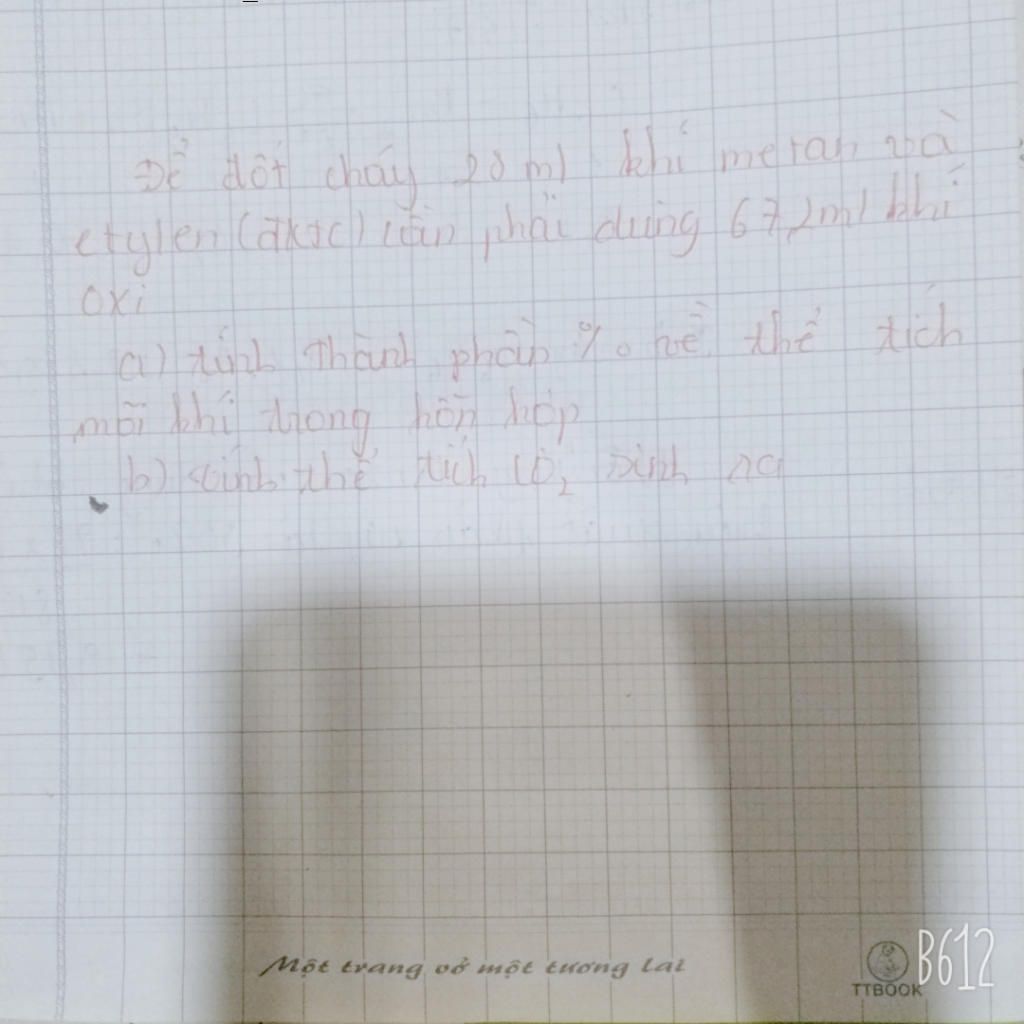 Để đốt cháy 28 ml khí metan và
etylen (đktc) cần phải dùng 67,2ml khí
oxi
a) tính thành phần % về thể tích
mỗi khí trong hỗn hợp
b) tính thể tích CO2 sinh ra
Một trang vở một tương lai
TTBOOK
B612